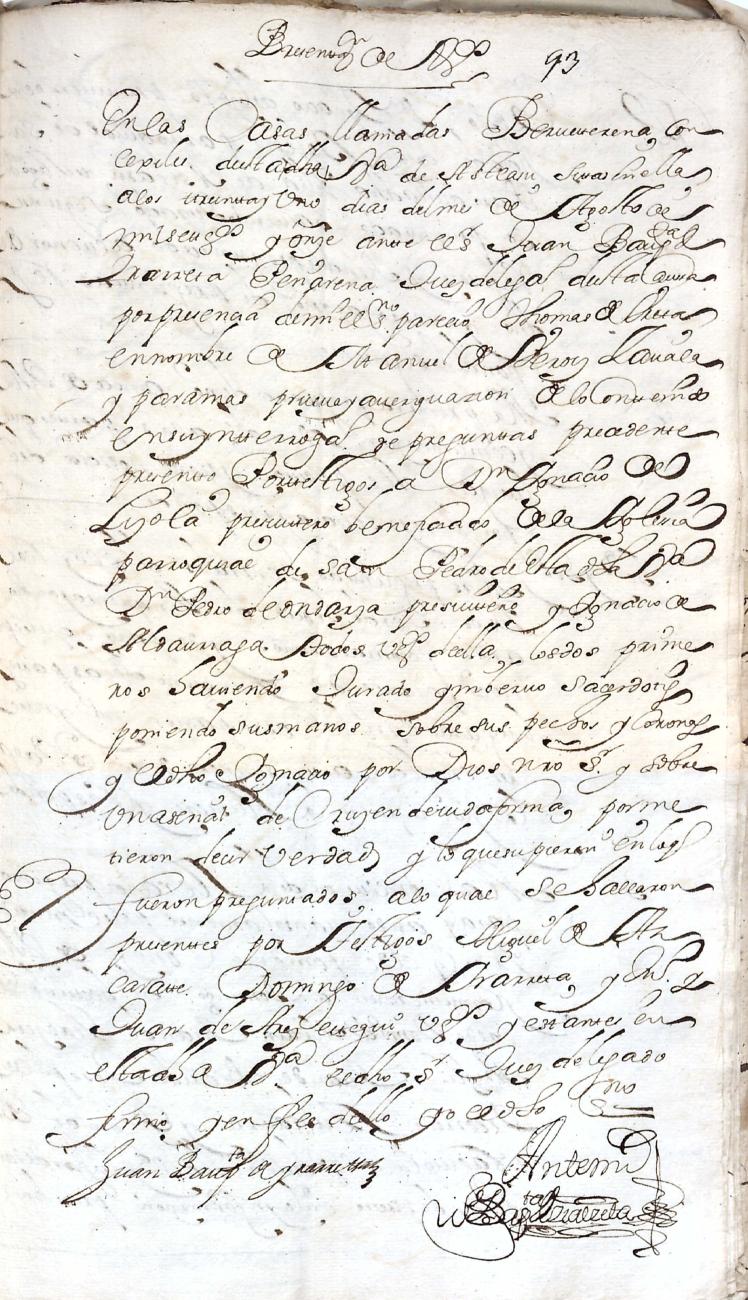 Presentⁿ de tgº 93
En las Casas llamadas Con
cegiles destadha Vª de
a los treintayuno dias del mes de Agosto de
milsetsº y onze ante el sʳ Juan Bapᵗª de
Yrarreta Peñarena Juez delegdº desta Caussa
por presencia demi el sⁿº parecio Thomas de
en nombre de Manuel de
y para mas prueva yaveriguazion de lo Contenido
ensu ynterrogatº de preguntas precedente
presento Portestigos a Dⁿ Ygnacio de
Loyola presvitero beneficiado de la Yglesia
parroquial de san Pedro de Esta dha Vª
Dⁿ Pedro de ondarza presvitero y Ygnacio de
Aldaurriaga todos vºs della, los dos prime
ros haviendo Jurado ynbervo sacerdotis
poniendo susmanos sobre sus pechos y Coronas
y el dho Ygnacio por Dios nrō Sʳ. y sobre
Unaseñal de Cruz en devidaforma, porme
tieron decir Verdad y lo quesupieren en loq
fueron preguntados, alo qual se hallaron
presentes por Testigos Miguel de Az
carate Domingo de Yrarreta, y
Juan de vºs y estantes en
estadha Vª el dho sʳ Juez delegado
firmo yenfee dello yo el dho Sⁿº
Juan Bauᵗª de Yrarreta
Antemi
Bapᵗª Yrarreta